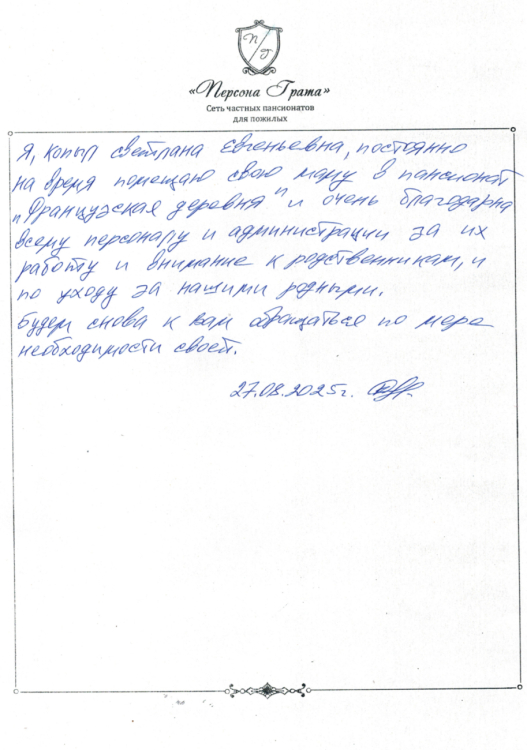 П Г
«Персона Грата»
Сеть частных пансионатов
для пожилых
Я, Копыл Светлана Евгеньевна, постоянно
на время помещаю свою маму в пансионат
"Французская деревня" и очень благодарна
всему персоналу и администрации за их
работу и внимание к родственникам, и
по уходу за нашими родными.
Будем снова к вам обращаться по мере
необходимости своей.
27.08.2025г.